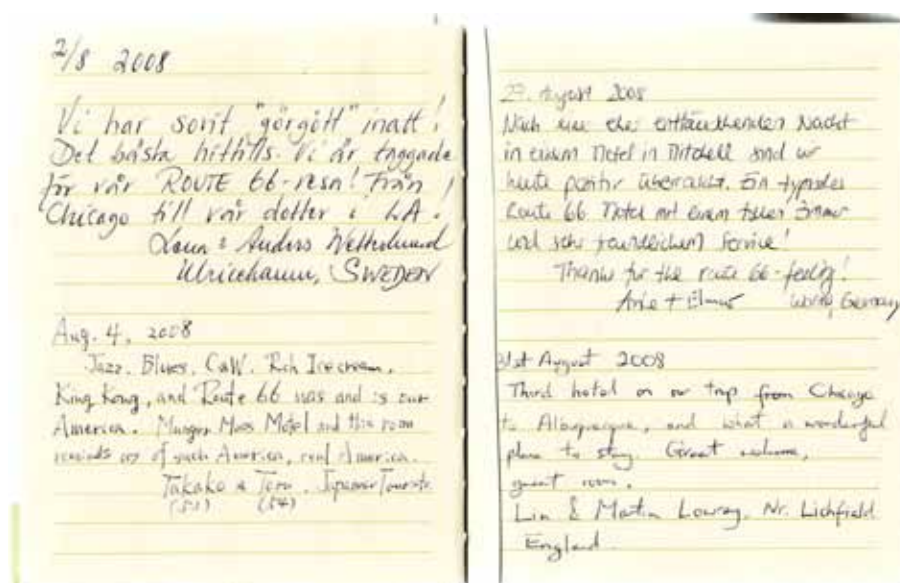 2/8 2008
Vi har sovit "görgött" inatt!
Det bästa hittills. Vi är taggade
för vår ROUTE 66-resa! Från
Chicago till vår dotter i LA!
& Anders
Ulricehamn, SWEDEN
Aug. 4, 2008
Jazz, Blues, C&W, Rich Icecream,
King Kong, and Route 66 was and is our
America. Munger Moss Motel and this room
reminds us of such America, real America.
Takako & Toru. Japanese Tourists
(53) (54)
29. August 2008
Nach einer eher enttäuschenden Nacht
in einem Motel in Mitchell sind wir
heute positiv überrascht. Ein typisches
Route 66 Motel mit einem tollen Zimmer
und sehr freundlichem Service!
Thanks for the route 66-feeling!
+ Elmar Germany
31st August 2008
Third hotel on our trip from Chicago
to Albuquerque, and what a wonderful
place to stay. Great welcome,
great room.
Lin & Martin Lowry, Nr. Lichfield
England.